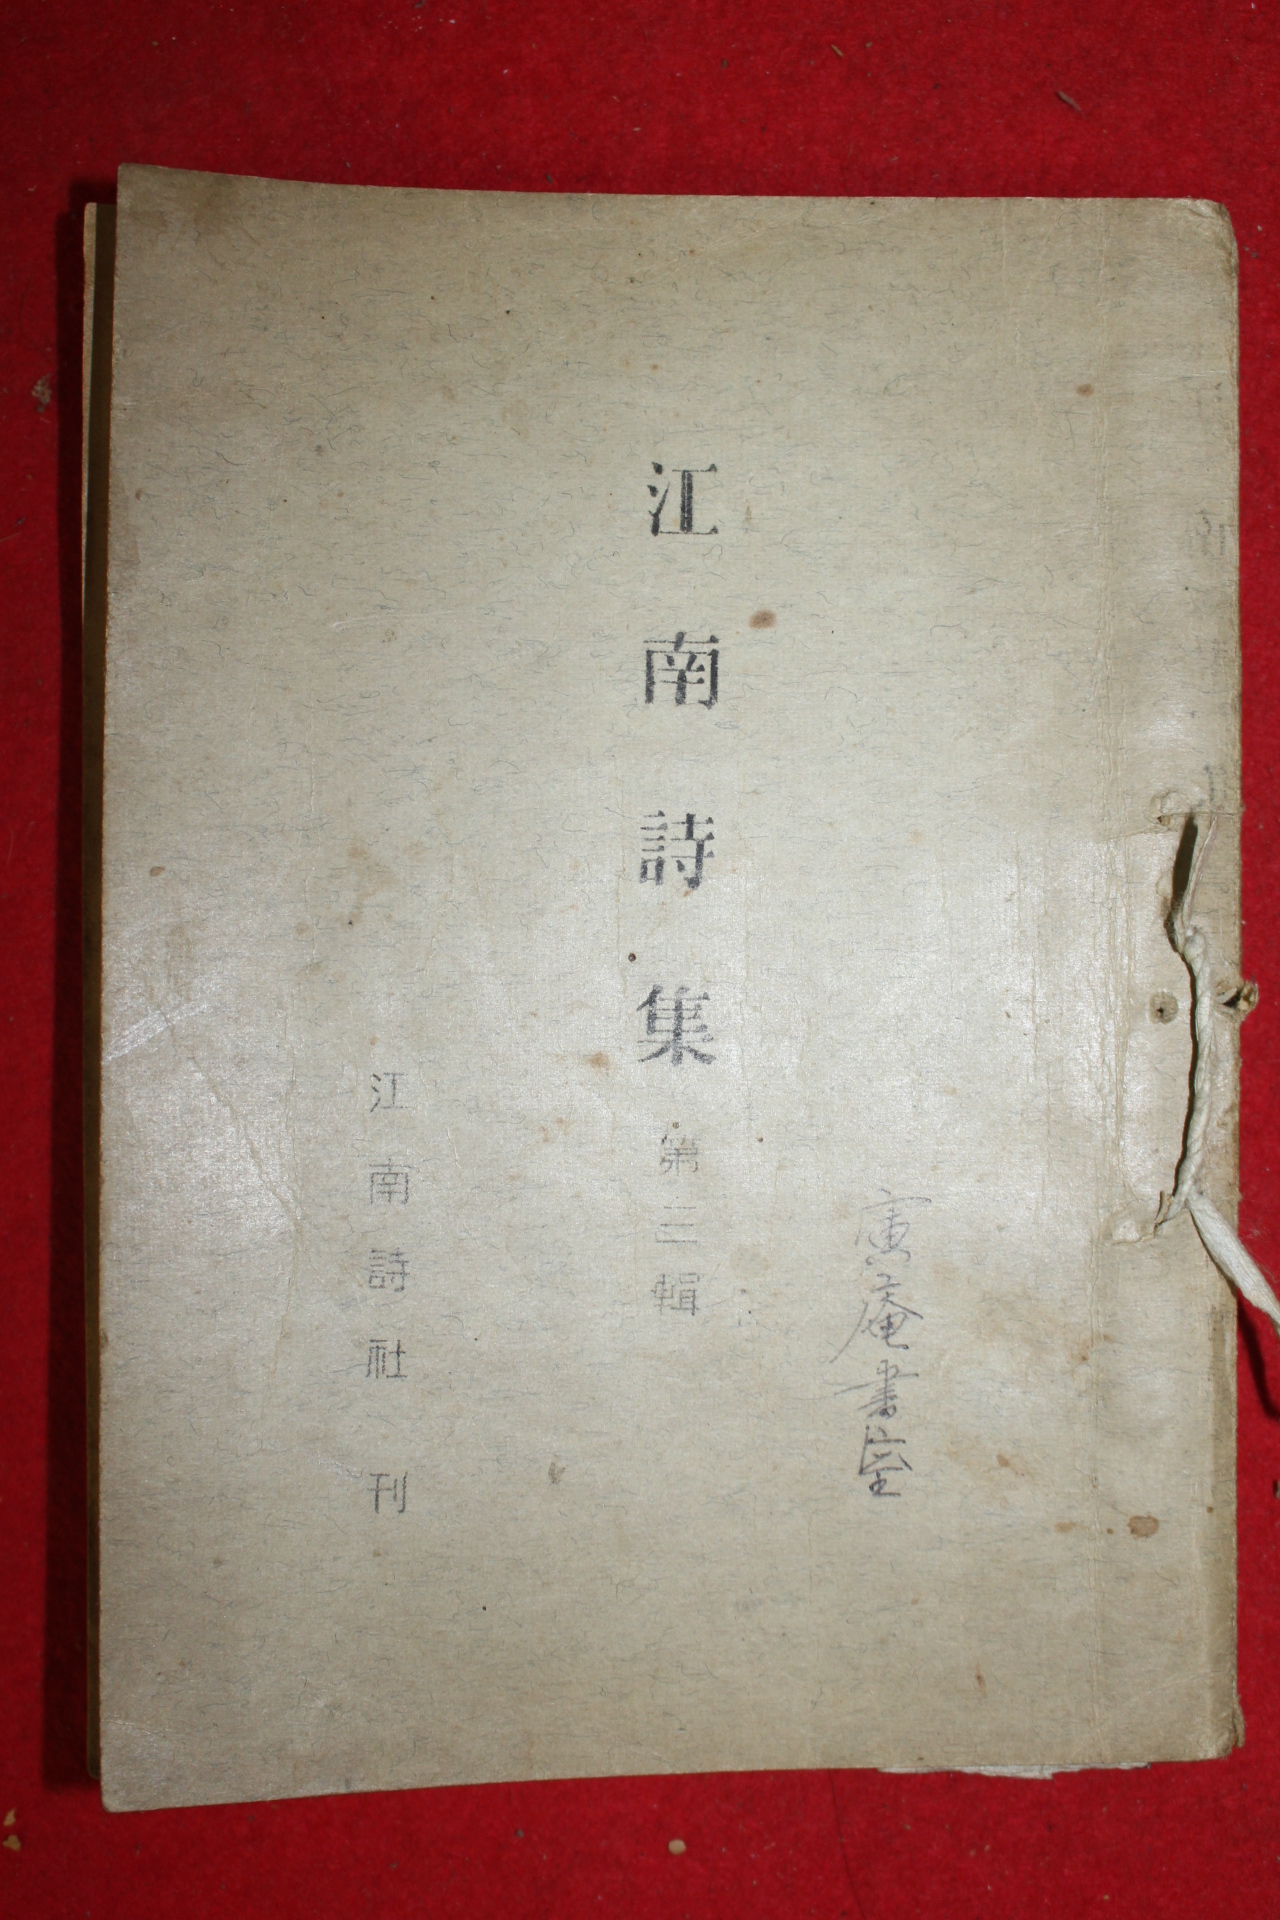 寅菴書室
江南詩集 第三輯
江南詩社刊